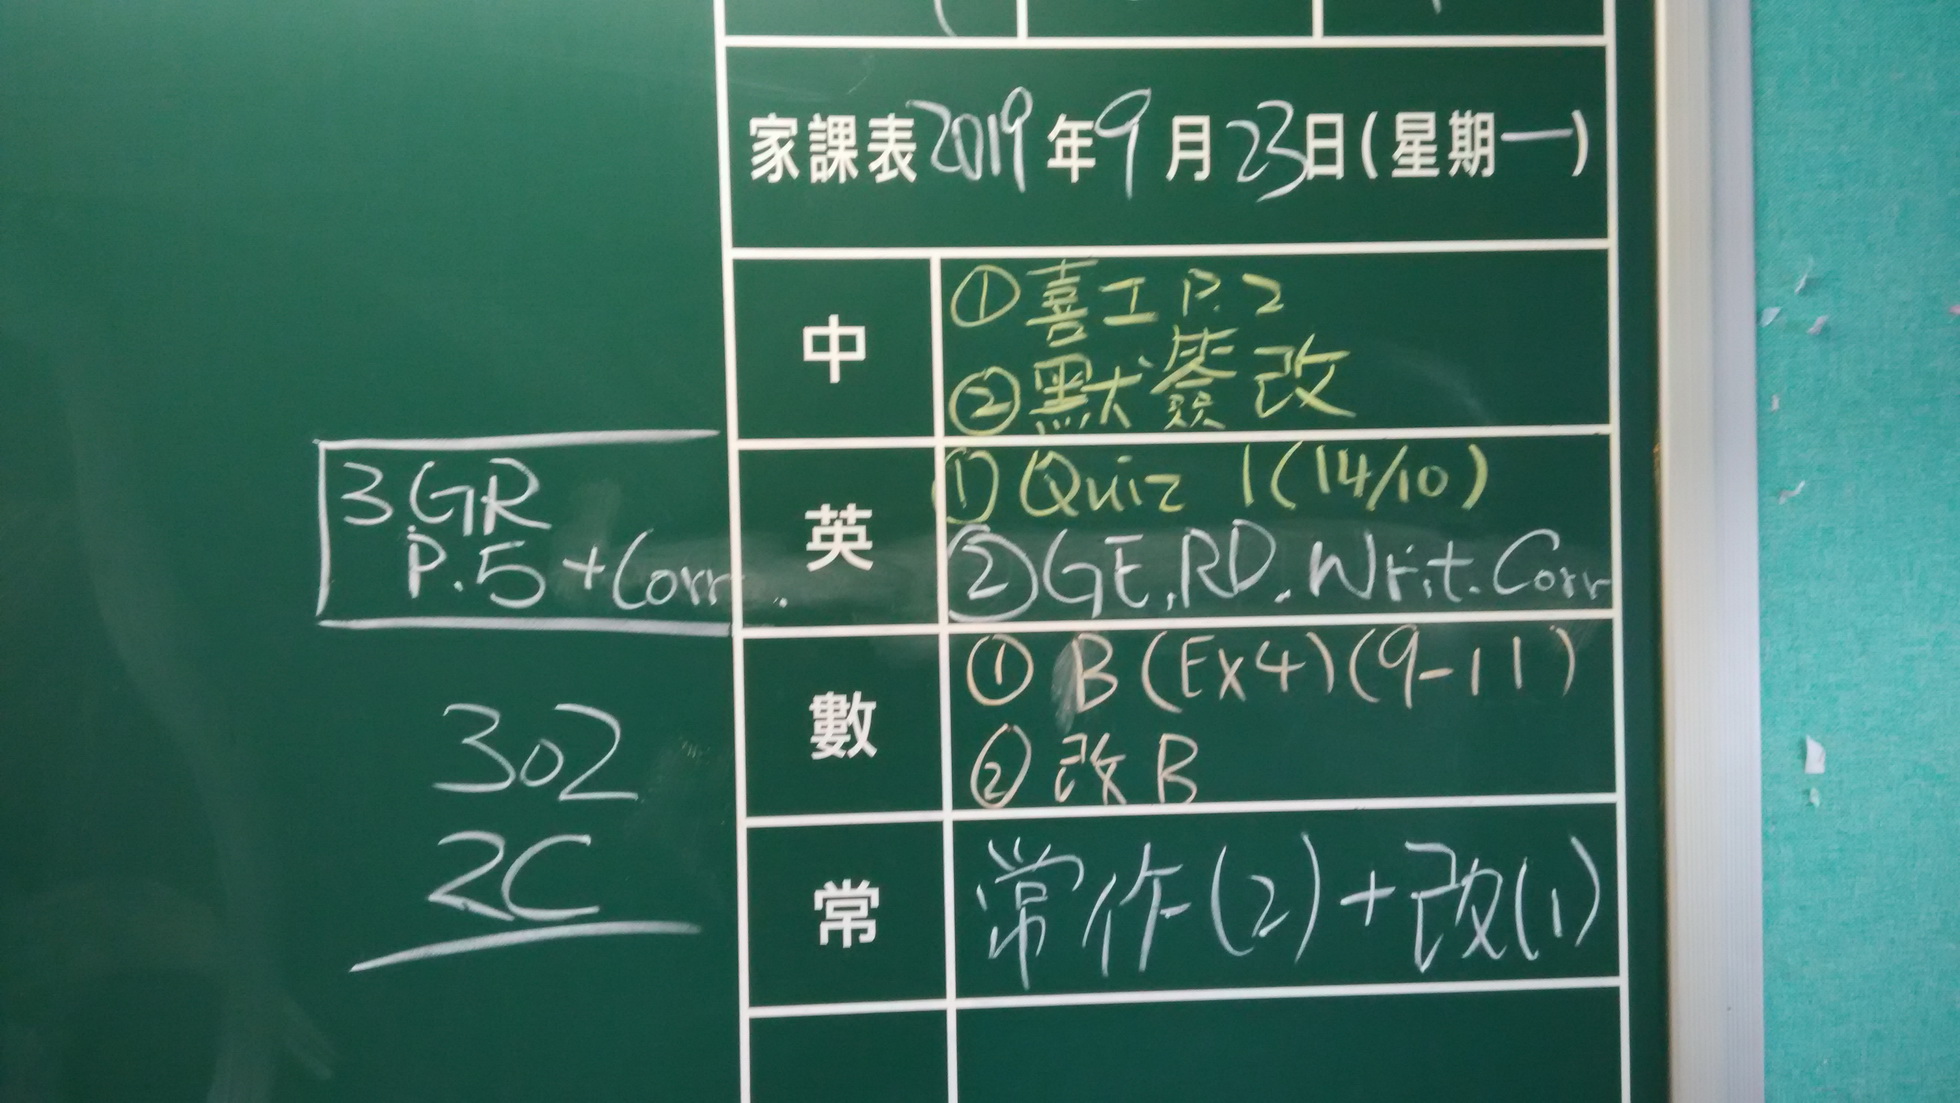 家課表2019年9月23日(星期一)
中
①喜工P.2
②默簽改
英
①Quiz 1(14/10)
②GE.RD.Writ.Corr
3GR
P.5+Corr.
數
①B(Ex4)(9-11)
②改B
302
2C
常
常作(2)+改(1)